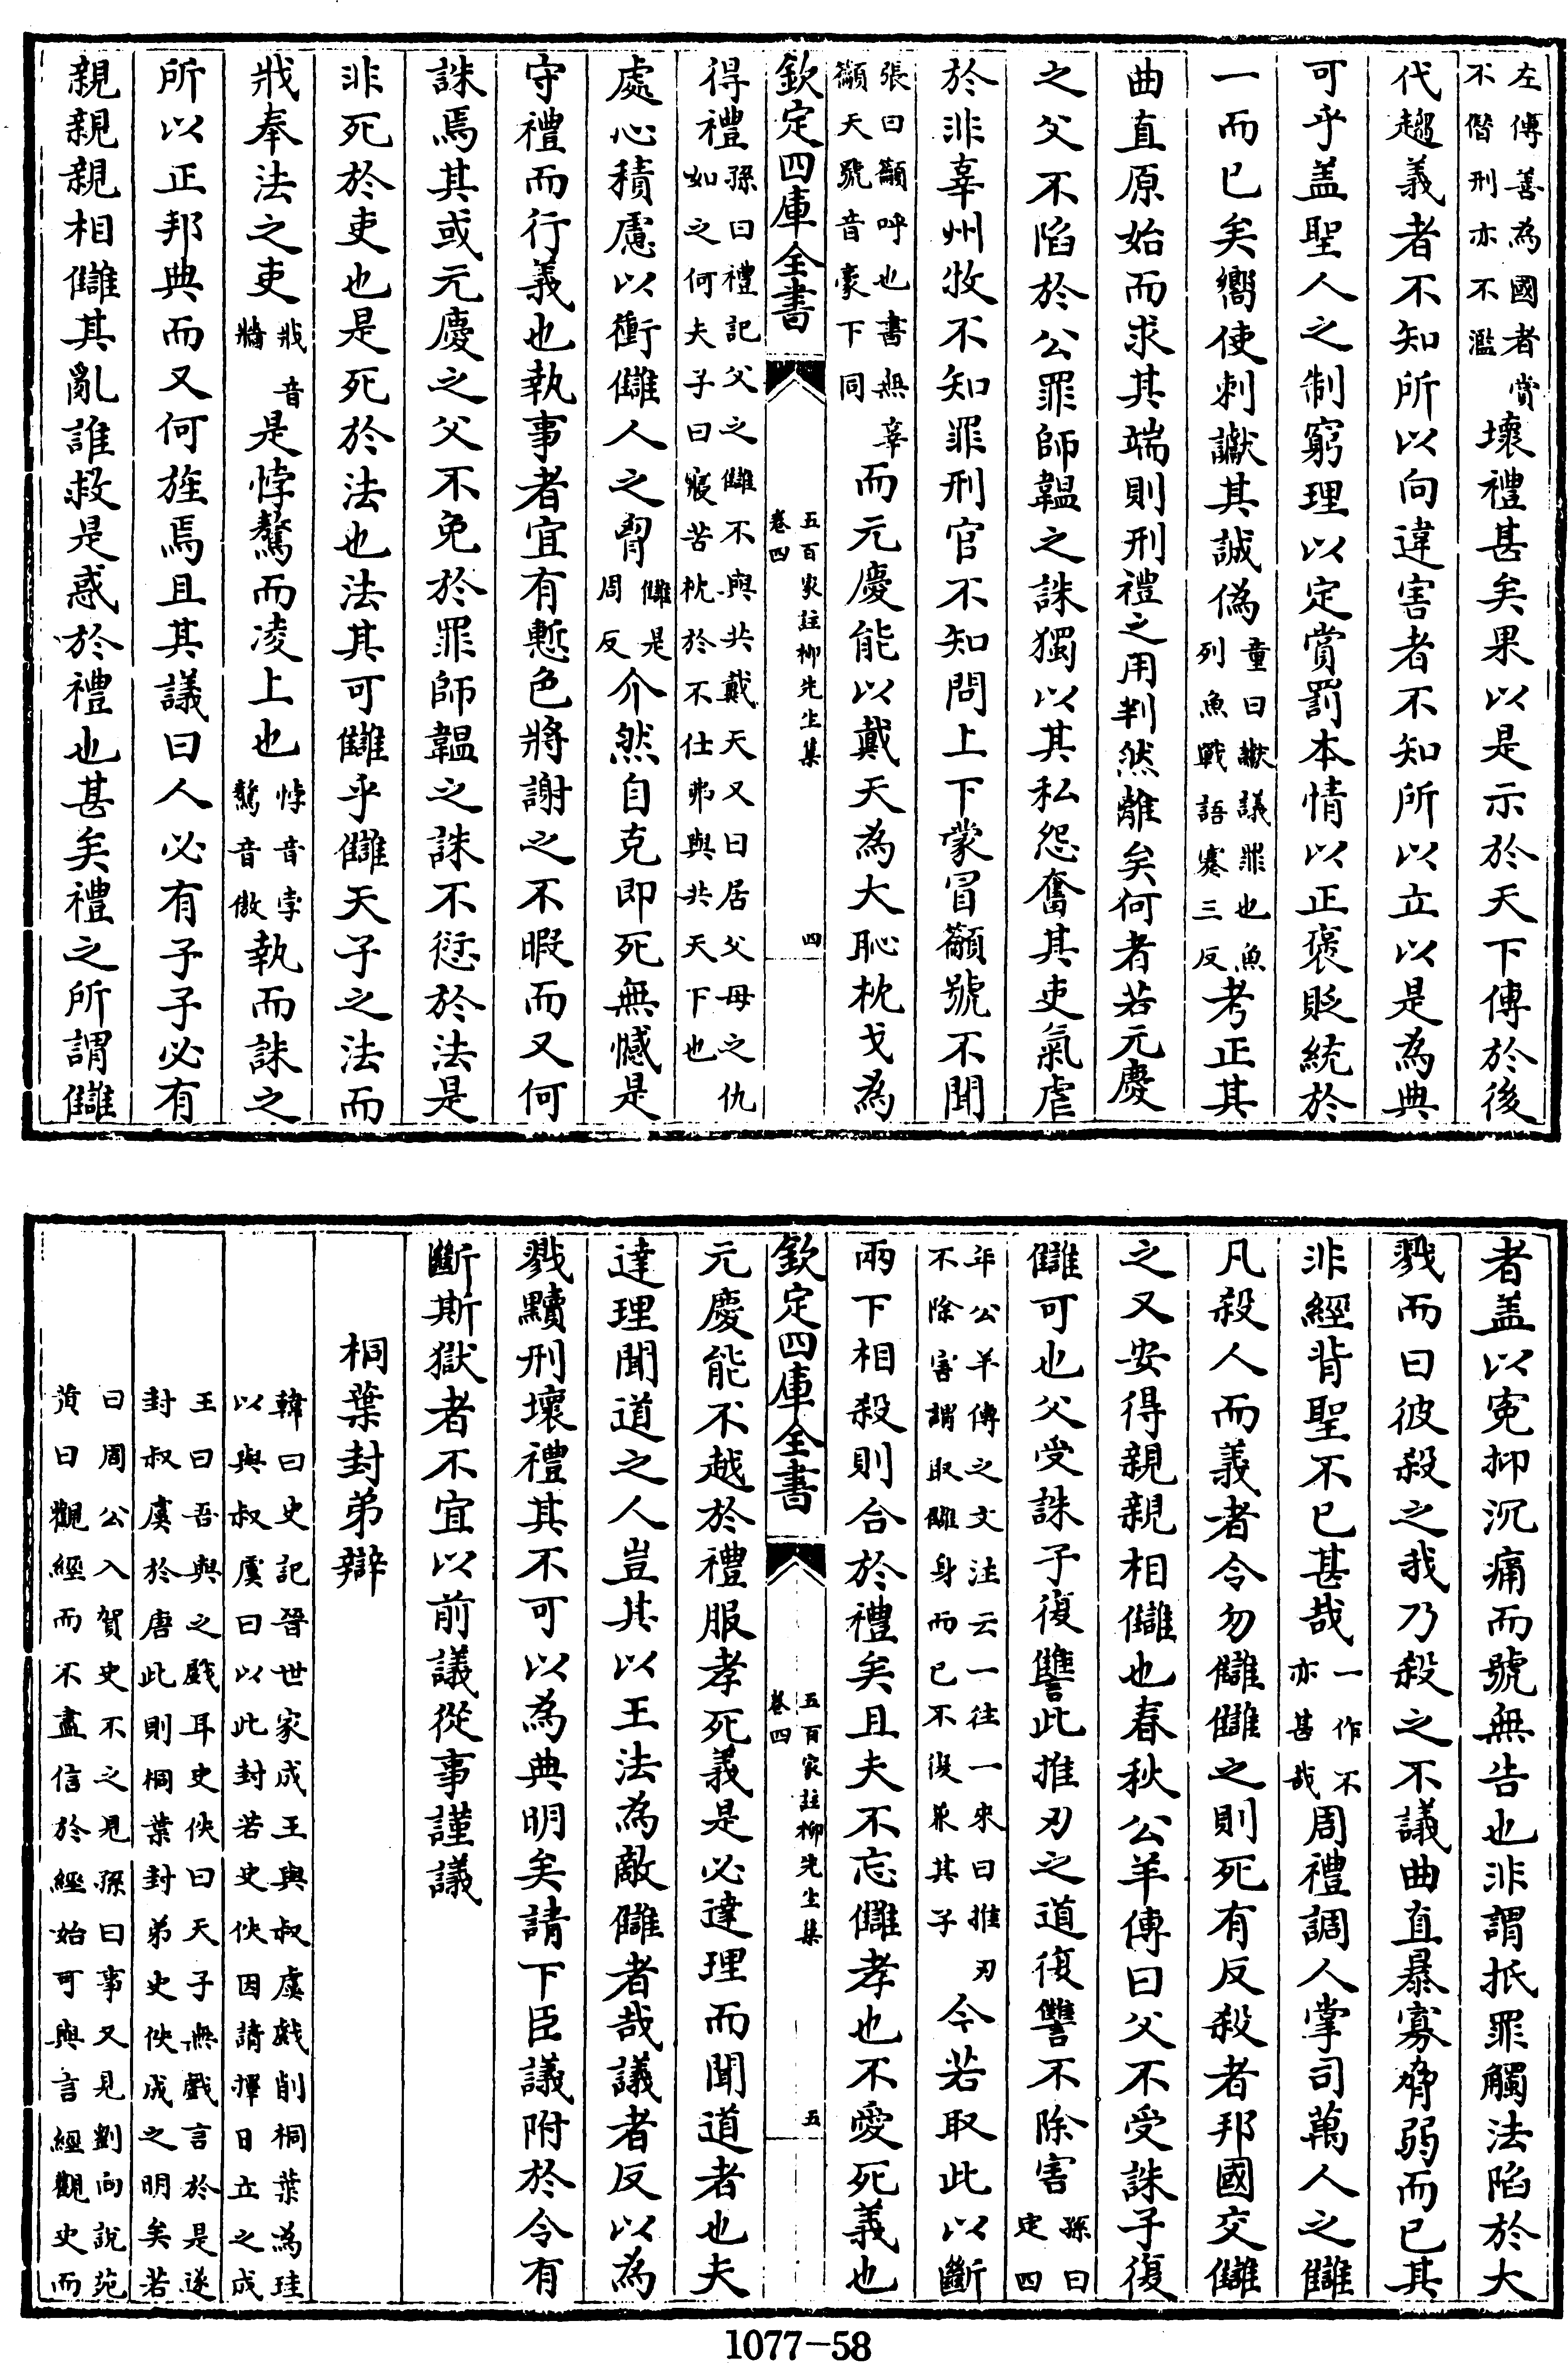 左傳善為國者賞不僭刑亦不濫壞禮甚矣果以是示於天下傳於後
代趨義者不知所以向違害者不知所以立以是為典
可乎盖聖人之制窮理以定賞罰本情以正褒貶統於
一而已矣嚮使刺讞其誠偽童曰讞議罪也魚列魚戰語蹇三反考正其
曲直原始而求其端則刑禮之用判然離矣何者若元慶
之父不陷於公罪師韞之誅獨以其私怨奮其吏氣虐
於非辜州牧不知罪刑官不知問上下蒙冒籲號不聞
張曰籲呼也書無辜籲天號音豪下同而元慶能以戴天為大恥枕戈為
欽定四庫全書
五百家註柳先生集
卷四
四
得禮孫曰禮記父之讎不與共戴天又曰居父母之仇如之何夫子曰寢苫枕於不仕弗與共天下也
處心積慮以衝讎人之胷讎是周反介然自克即死無憾是
守禮而行義也執事者宜有慙色將謝之不暇而又何
誅焉其或元慶之父不免於罪師韞之誅不愆於法是
非死於吏也是死於法也法其可讎乎讎天子之法而
戕奉法之吏戕音牆是悖驁而凌上也悖音孛驁音傲執而誅之
所以正邦典而又何旌焉且其議曰人必有子子必有
親親親相讎其亂誰救是惑於禮也甚矣禮之所謂讎
者盖以寃抑沉痛而號無告也非謂抵罪觸法陷於大
戮而曰彼殺之我乃殺之不議曲直暴寡脅弱而已其
非經背聖不已甚哉一作不亦甚哉周禮調人掌司萬人之讎
凡殺人而義者令勿讎讎之則死有反殺者邦國交讎
之又安得親親相讎也春秋公羊傳曰父不受誅子復
讎可也父受誅子復讐此推刃之道復讐不除害孫曰定四
年公羊傳之文注云一往一來曰推刃不除害謂取讎身而已不復兼其子今若取此以斷
兩下相殺則合於禮矣且夫不忘讎孝也不愛死義也
欽定四庫全書
五百家註柳先生集
卷四
五
元慶能不越於禮服孝死義是必達理而聞道者也夫
達理聞道之人豈其以王法為敵讎者哉議者反以為
戮黷刑壞禮其不可以為典明矣請下臣議附於令有
斷斯獄者不宜以前議從事謹議
桐葉封弟辯
韓曰史記晉世家成王與叔虞戲削桐葉為珪以與叔虞曰以此封若史佚因請擇日立之成
王曰吾與之戲耳史佚曰天子無戲言於是遂封叔虞於唐此則桐葉封弟史佚成之明矣若
曰周公入賀史不之見孫曰事又見劉向說苑黄曰觀經而不盡信於經始可與言經觀史而
1077-58